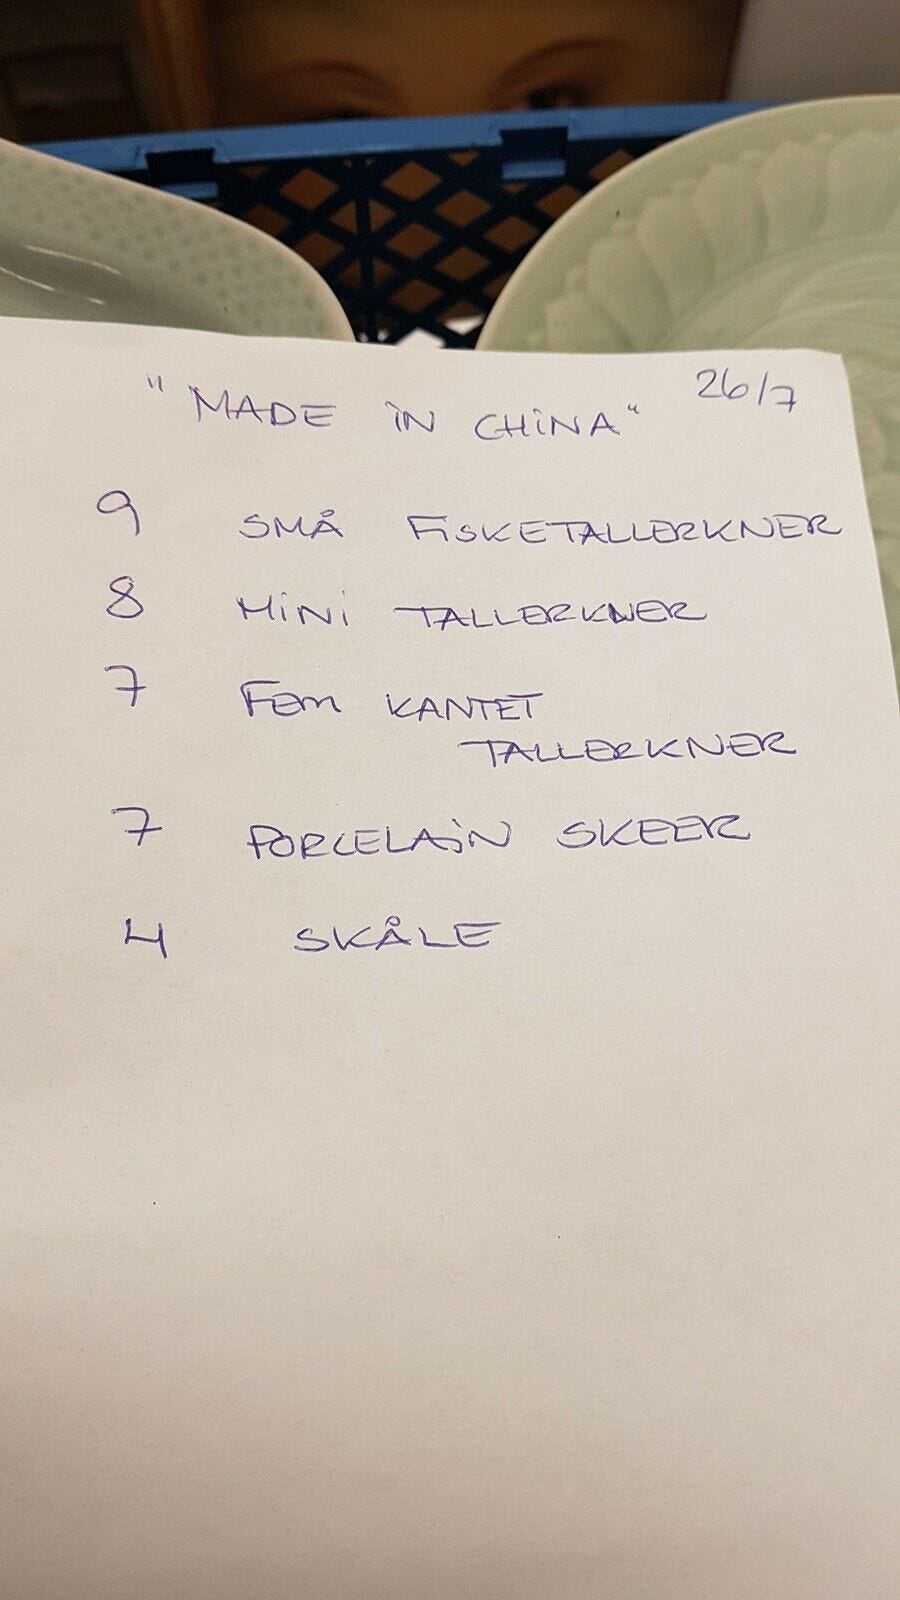 "MADE IN CHINA" 26/7
9 SMÅ FISKETALLERKNER
8 MINI TALLERKNER
7 FEM KANTET
TALLERKNER
7 PORCELAIN SKEER
4 SKÅLE